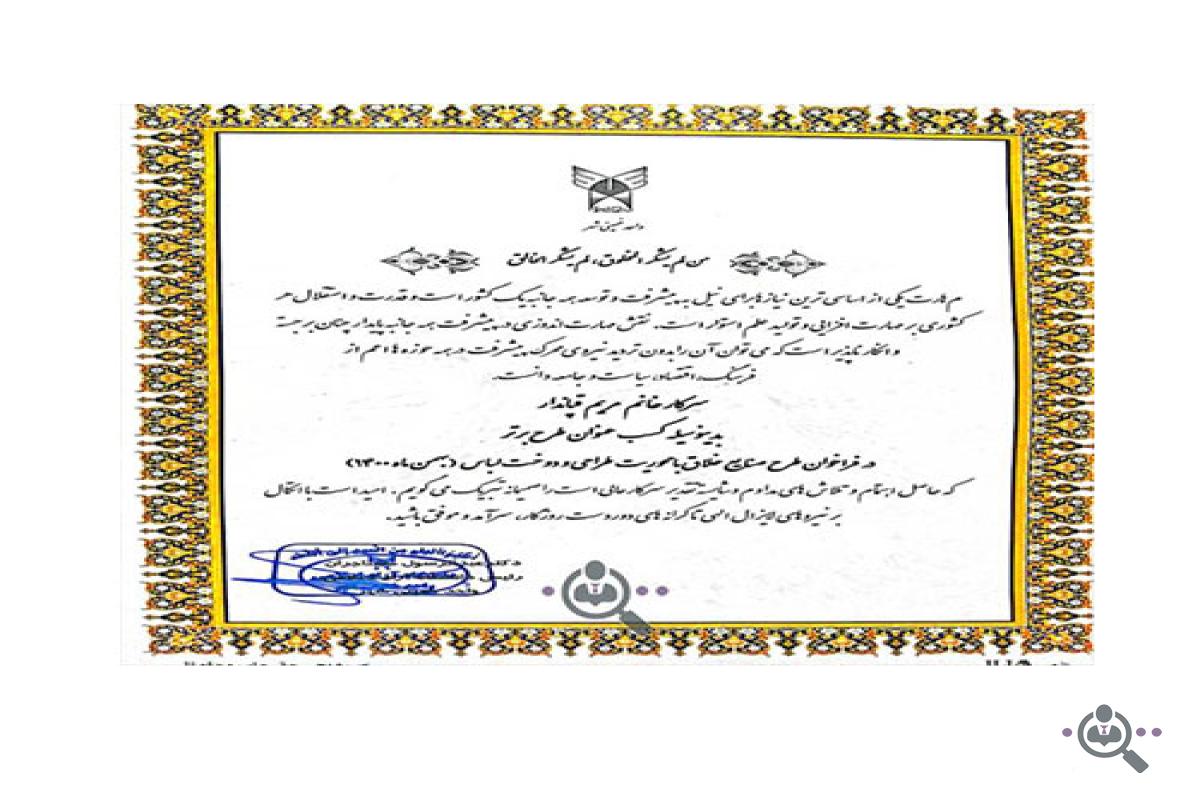 واحد خمینی شهر
من لم یشکر المخلوق، لم یشکر الخالق
مهارت یکی از اساسی ترین نیازها برای نیل به پیشرفت و توسعه همه جانبه یک کشور است و قدرت و استقلال هر
کشوری بر مهارت افزایی و تولید علم استوار است. نقش مهارت اندوزی در پیشرفت همه جانبه پایدار چنان برجسته
و انکار ناپذیر است که می توان آن را بدون تردید نیروی محرک پیشرفت در همه حوزه ها اعم از
فرهنگ، اقتصاد، سیاست و جامعه دانست.
سرکار خانم مریم قپاندار
بدینوسیله کسب عنوان طرح برتر
در فراخوان طرح صنایع خلاق با محوریت طراحی و دوخت لباس (بهمن ماه ۱۴۰۰)
که حاصل اهتمام و تلاش های مداوم و شایسته تقدیر سرکار عالی است را صمیمانه تبریک می گویم. امید است با اتکال
بر نیروهای لایزال الهی تا کرانه های دوردست روزگار، سرآمد و موفق باشید.
دکتر رسول
رئیس